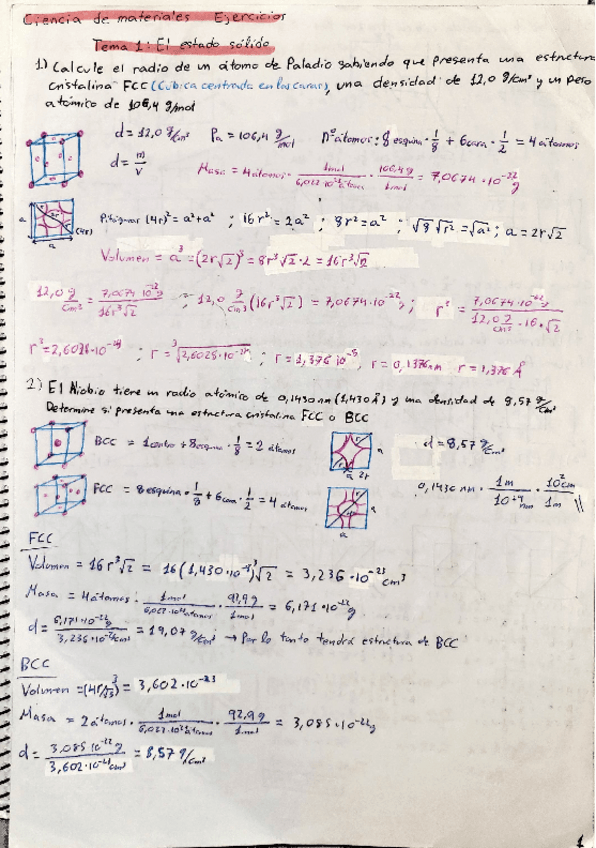 Ciencia de materiales Ejercicios
Tema 1: El estado sólido
1.) Calcule el radio de un átomo de Paladio sabiendo que presenta una estructura
cristalina FCC (Cúbica centrada en las caras), una densidad de 12,0 g/cm³ y un peso
atómico de 106,4 g/mol
d = 12,0 g/cm³ Pa = 106,4 g/mol Nº átomos: 8 esquina · 1/8 + 6 cara · 1/2 = 4 átomos
d = m/v
Masa = 4 átomos · 1mol/6,022·10²³ átomos · 106,4g/1mol = 7,0674·10⁻²² g
Pitágoras (4r)² = a² + a² ; 16r² = 2a² ; 8r² = a² ; √8 √r² = √a² ; a = 2r√2
a a (4r)
Volumen = a³ = (2r√2)³ = 8r³√2 · 2 = 16r³√2
12,0 g/cm³ = 7,0674·10⁻²²/16r³√2 ; 12,0 g/cm³ (16r³√2) = 7,0674·10⁻²² ; r³ = 7,0674·10⁻²² g/12,0 g/cm³ · 16 · √2
r³ = 2,6028·10⁻²⁴ ; r = ³√2,6028·10⁻²⁴ ; r = 1,376·10⁻⁸ ; r = 0,1376 nm r = 1,376 Å
2) El Niobio tiene un radio atómico de 0,1430 nm (1,430 Å) y una densidad de 8,57 g/cm³
Determine si presenta una estructura cristalina FCC o BCC
BCC = 1 centro + 8 esquina · 1/8 = 2 átomos a a 2r d = 8,57 g/cm³
FCC = 8 esquina · 1/8 + 6 cara · 1/2 = 4 átomos a 0,1430 nm · 1m/10⁺⁹nm · 10²cm/1m
FCC
Volumen = 16r³√2 = 16 (1,430·10⁻⁸)³ √2 = 3,236·10⁻²³ cm³
Masa = 4 átomos · 1mol/6,022·10²³ átomos · 92,9g/1mol = 6,171·10⁻²² g
d = 6,171·10⁻²² g/3,236·10⁻²³ cm³ = 19,07 g/cm³ → Por lo tanto tendrá estructura de BCC
BCC
Volumen = (4r/√3)³ = 3,602·10⁻²³
Masa = 2 átomos · 1mol/6,022·10²³ átomos · 92,9g/1mol = 3,085·10⁻²² g
d = 3,085·10⁻²² g/3,602·10⁻²³ cm³ = 8,57 g/cm³
1